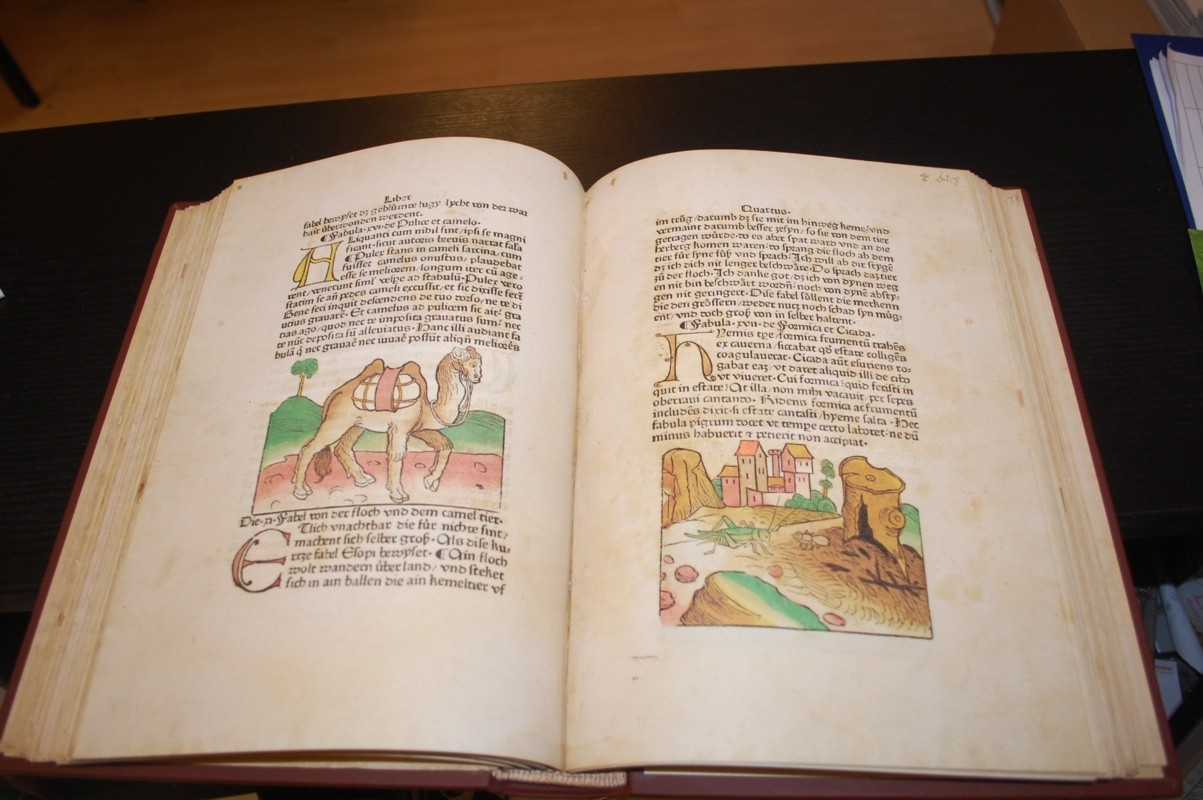 Liber
fabel bewyset dz geblümte lugy, lycht von der war
hait überwonden werdent.
¶Fabula .xvi. de Pulice et camelo.
ALiquanti cum nihil sint, ipsi se magni
ficant, sicut autoris brevis narrat fabula
¶Pulex stans in cameli sarcina, cum
fuisset camelus onustus, plaudebat
esse se meliorem, longum iter cū age-
rent, venerunt siml vespe ad stabulū. Pulex vero
statim se añ pedes cameli excussit, et sic dixisse fert
Bene feci inquit descendens de tuo dorso, ne te di
utius gravarē. Et camelus ad pulicem sic ait: gra
tias ago, quod nec te imposita gravatus sum, nec
te nūc deposita sū alleviatus. Hanc illi audiant fa
bulā q̄ nec gravaē nec iuvaē possūt aliqñ meliores
Die .xvi. Fabel von der floch vnd dem camel tier.
ETlich vnachtbar die für nichte sint,
machent sich selber groß. Als dise ku-
rcze fabel Esopi bewyset. ¶Ain floch
wolt wandern über land, vnd steket
sich in ain ballen die ain kemeltier vf
Quartus.
im trůg, darumb dz sie mit im hin weg keme, vnd
vermaint darumb besser zesyn, so sie von dem tier
getragen würde. do es aber spat ward vnd an die
herberg komen waren, do sprang die floch ab dem
tier für syne füß vnd sprach, Ich will ab dir
dz ich dich nit lenger beschwäre. Do sprach daz tier
zů der floch. Ich danke got, dz ich von dynen weg
en nit bin beschwärt wordñ, noch von dynē absty-
gen nit geringert. Dise fabel söllent die merkenn
die den grössern, weder nucz noch schad syn mög-
ent, vnd doch groß von in selber haltent.
¶Fabula .xvii. de Formica et Cicada.
HYemis tpe, formica frumentū trahēs
ex caverna, siccabat qd estate colligēs
coagulaverat. Cicada aūt esuriens ro-
gabat eaz, vt daret aliquid illi de cibo
vt viveret. Cui formica, quid fecisti in
quit in estate? At illa, non mihi vacavit, per sepes
oberravi cantando. Ridens formica ac frumentū
includēs dixit, si estate cantasti, hyeme salta. Hec
fabula pigrum docet vt tempe certo laboret, ne dū
minus habuerit & petierit non accipiat.